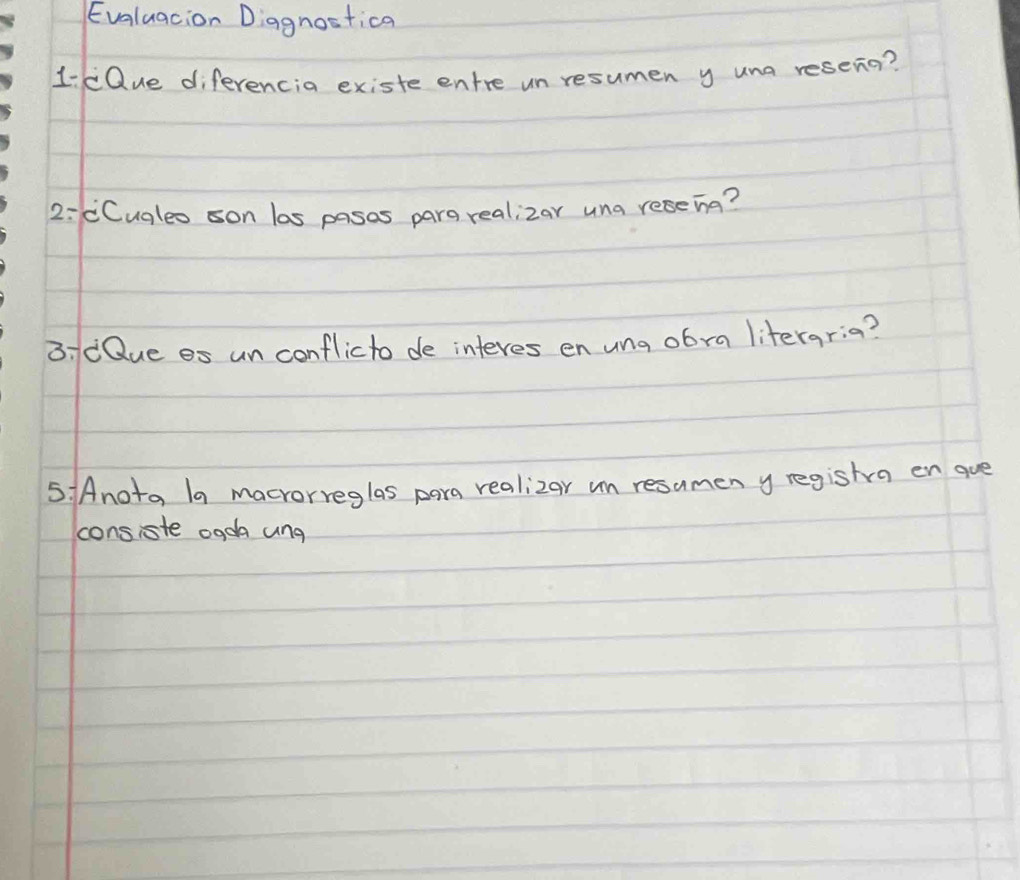 Evaluacion Diagnostica
1-¿Que diferencia existe entre un resumen y una reseña?
2-¿Cuales son los pasos para realizar una reseña?
3-¿Que es un conflicto de interes en una obra literaria?
5-Anota la macrorreglas para realizar un resumen y registra en que
consiste cada una